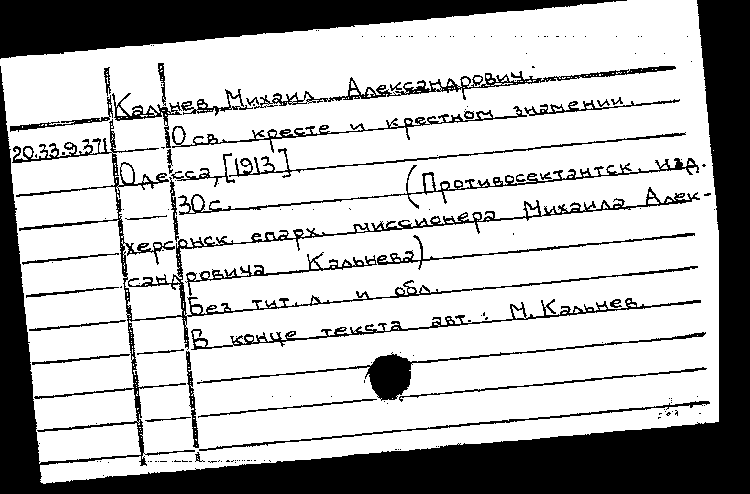 Кальнев, Михаил Александрович.
О св. кресте и крестном знамении.
20.33.9.371
Одесса, [1913].
30с. (Противосектантск. изд.
херсонск. епарх. миссионера Михаила Алек-
сандровича Кальнева).
Без тит. л. и обл.
В конце текста авт.: М. Кальнев.